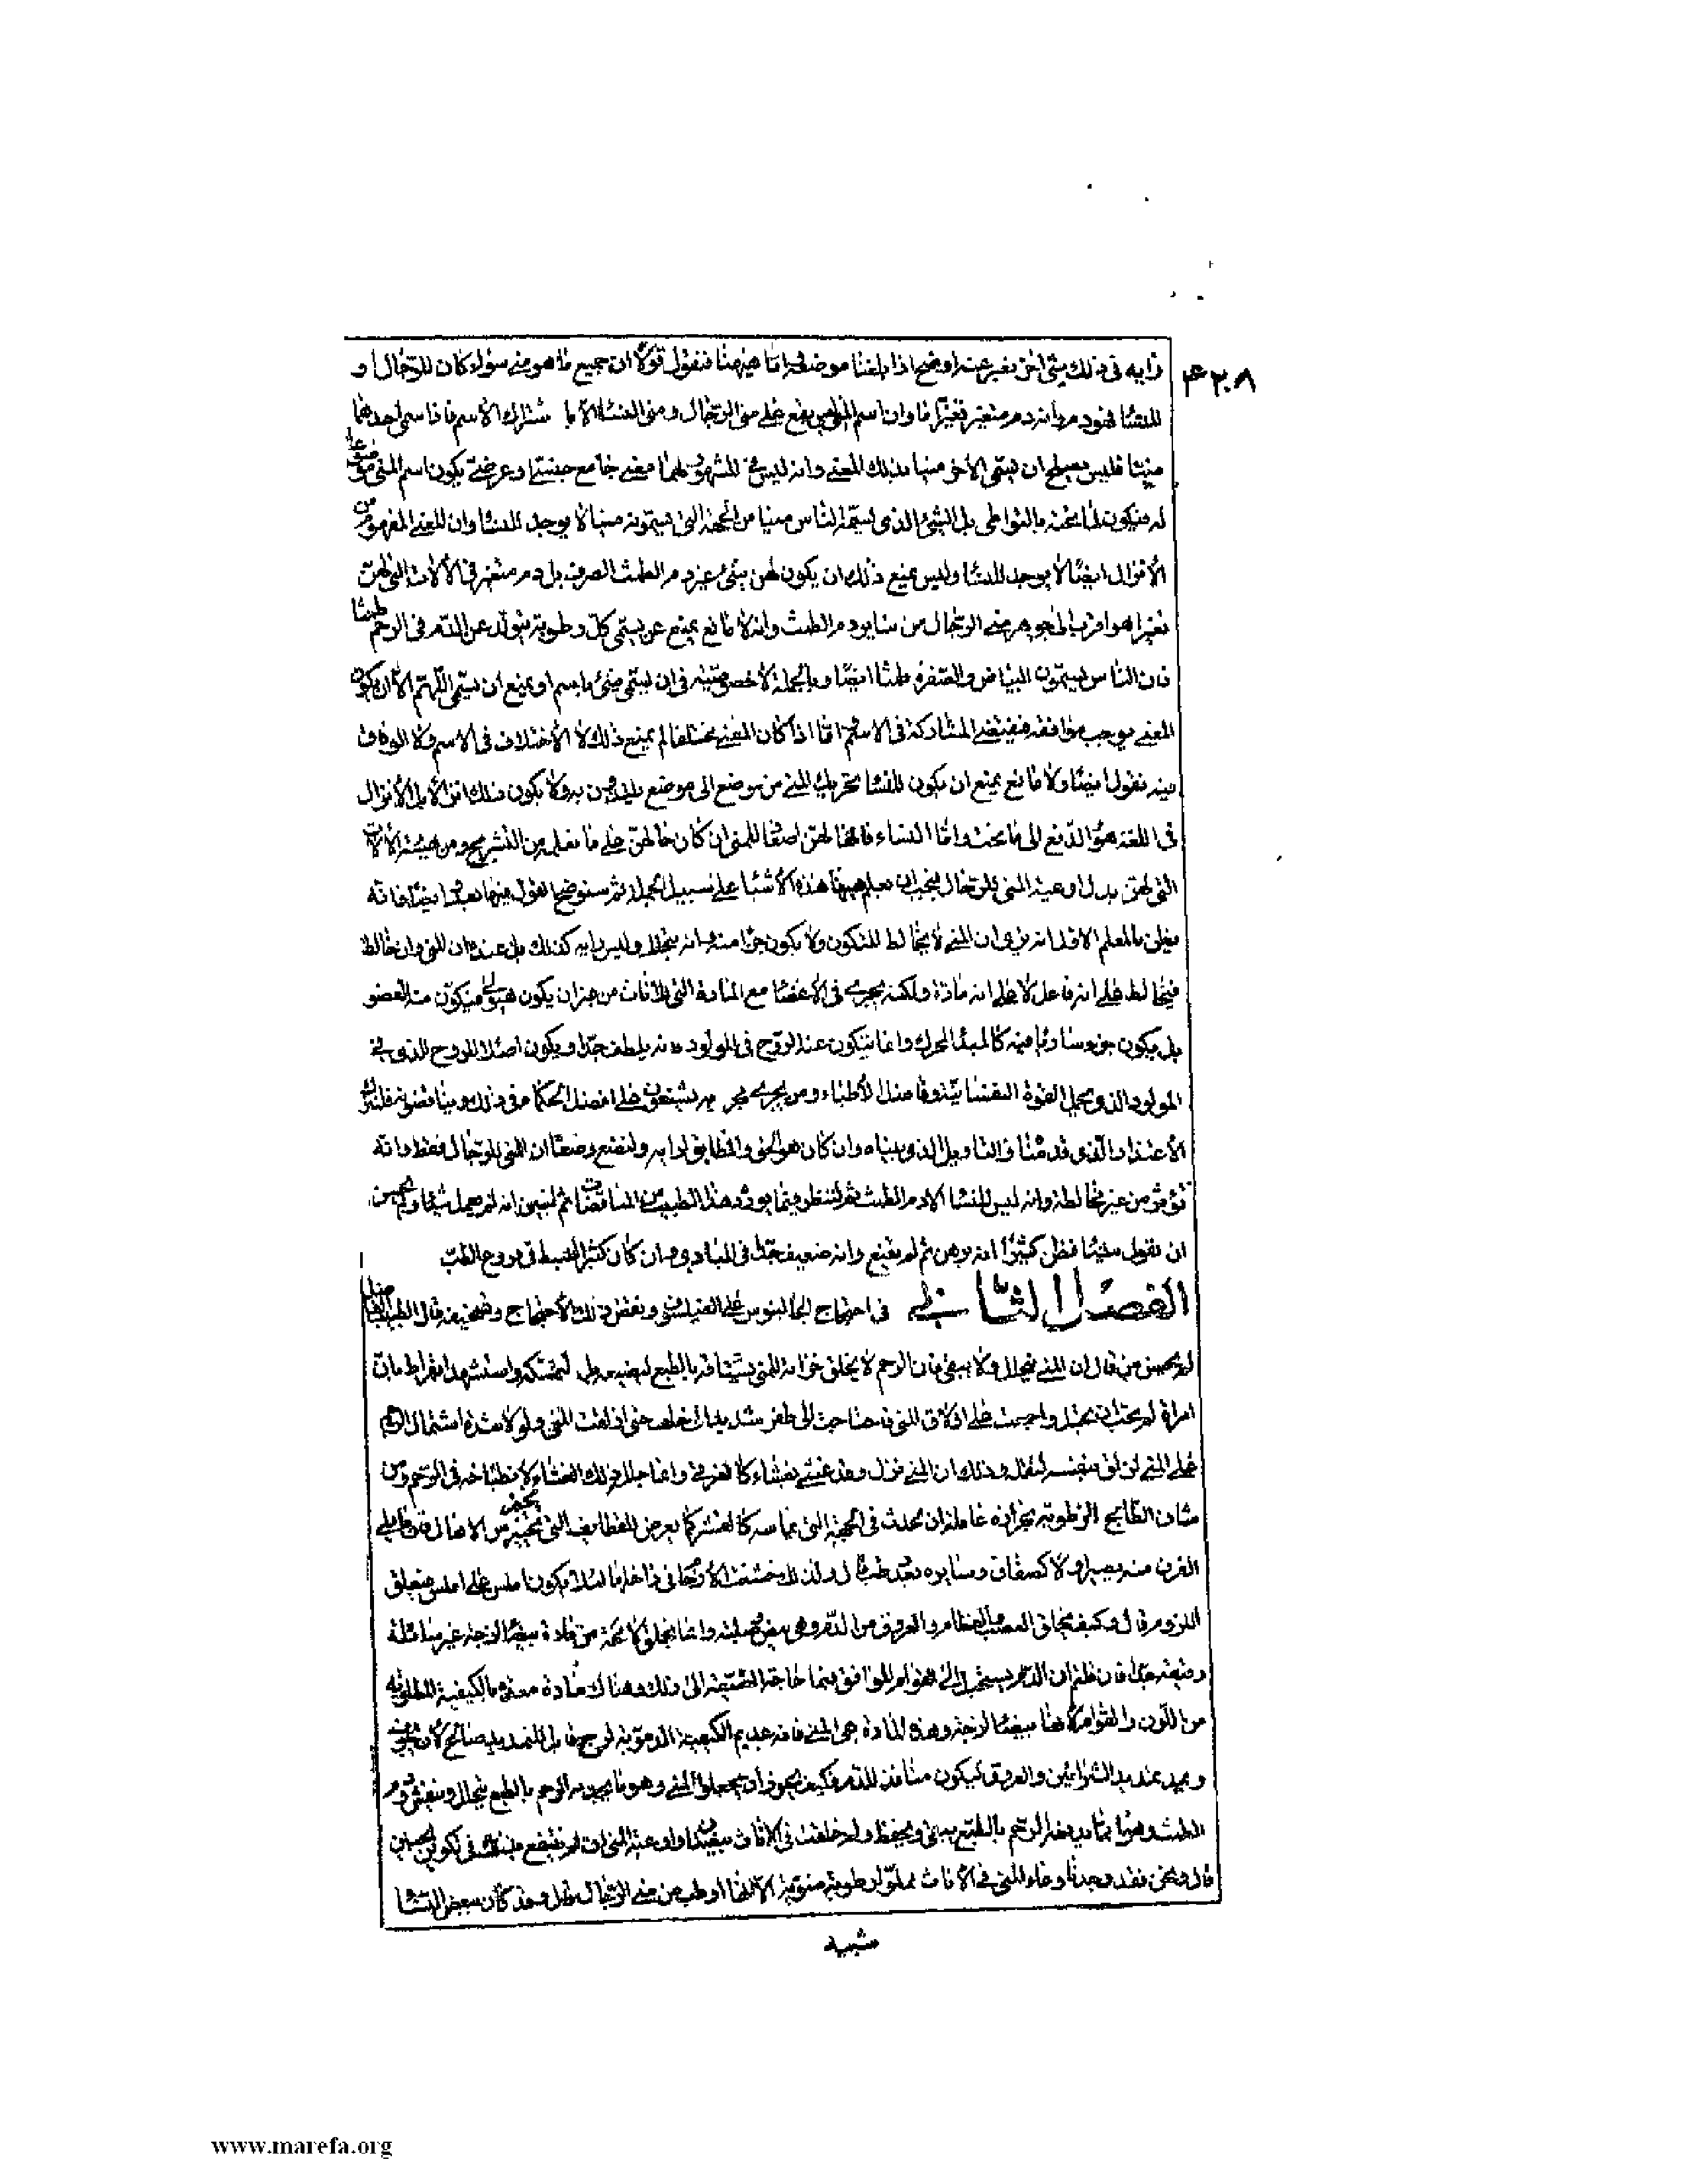 رايه فى ذلك بشئ اخر بغير عنه او يصح اذا بلغنا موضعه اما هيهنا فنقول قولا ان جميع ما هو منى سواء كان للرجال او
٤٢٠٨
للنساء فهو دم وانه دم متغير تغيرا ما وان اسم المنى يقع على منى الرجال ومنى النساء الا با شتراك الاسم فاذا سمى احدهما
منيا فليس يصلح ان يسمى الاخر منيا بذلك المعنى وانه ليس فى المشهور لهما معنى جامع جنسى او عرضى يكون اسم المنى موضوعا
له فيكون لما تحته بالتواطى بل الشئ الذى يسميه الناس منيا من الجهة التى يسمونه منيا لا يوجد للنساء وان المعنى المفهوم من
الانزال ايضا لا يوجد للنساء وليس يمنع ذلك ان يكون لهن شئ غير دم الطمث الصرف بل دم متغير فى الالات التى لهن
تغيرا هو اقرب الى جوهر منى الرجال من سايردم الطمث وانه لا مانع يمنع عن يسمى كل رطوبة يتولد عن الدم فى الرحم طمثا
فان الناس يسمون البياض والصفرة طمثا ايضا وبالجملة لا خصوصية فى ان يسمى شئ ما باسم او يمنع ان يسمى اللهم الا ان يكون
المعنى يوجب موافقة فيقتضى المشاركة فى الاسم واما اذا كان المعنى مختلفا لم يمنع ذلك لا الاختلاف فى الاسم ولا الوفاق
فيه نقول ايضا ولا مانع يمنع ان يكون للنساء تحريك المنى من موضع الى موضع يلتذذن به ولا يكون ذلك انزالا بل الانزال
فى اللغة هو الدفع الى ما تحت واما النساء فانما لهن اصعاد للمنى ان كان حالهن على ما نعلم من التشريح ومن هيئة الالات
التى لهن بدل اوعية المنى للرجال فيجب ان يعلم هيهنا هذه الاشيا على سبيل الجملة ثم سنوضح القول فيها بعد ايضا فانه
يظن بالمعلم الاول انه يرى ان المنى لا يخالط المتكون ولا يكون جزا منه وانه يتحلل وليس رايه كذلك بل عنده ان المنى وان خالط
فيخالط على انه فاعل لا على انه مادة ولكنه يجرى فى الاعضا مع المادة التى للاناث من غير ان يكون هيولى فيتكون منه العضو
بل يكون جزوسا ريا فيه كالمبدا المحرك وانما يتكون عنه الروح فى المولود فانه يلطف جدا ويكون اصلا للروح الذى فى
المولود الذى يحمل القوة النفسانية وفاضل الاطباء ومن يجرى مجر يه يشنعون على افضل الحكما فى ذلك ويناقضونه فلنترك
الاعتذار الذى قدمنا والتاويل الذى بيناه وان كان هو الحق والمطابق لرايه ولنضع وضعا ان المنى للرجال فقط وانه
تؤثر من غير مخالطة وانه ليس للنسا الا دم الطمث ثم لننظر فيما يورده هذا الطبيب من المناقضات ثم لنبين انه لم يعمل شيئا ولم يحسن
ان يقول شيئا فظن كثيرا انه برهن ثم لم يقنع وانه ضعيف جدا فى المبادى وان كان كثير البسط فى فروع الطب
الفصل الثانى فى احتجاج لجالينوس على الفيلسوف ونقض ذلك الاحتجاج وتسخيفه قال الطبيب الفاضل
لم يحسن من قال ان المنى يتحلل ولا يبقى فان الرحم لا يخلق خزانة للمنى يشتاقه بالطبع ليضيعه بل ليمسكه واستشهد ابقراط بان
امراة لم تحب ان تحبل واحبت على ازلاق المنى فاحتاجت الى طفر شديد الى خلف حتى ازلقت المنى ولولا شدة اشتمال الرحم
على المنى لزلق بنفسه لثقله وذلك ان المنى نزل وقد غشى بغشاء كالغرقى وانما جلل ذلك الغشاء لانطباخه فى الرحم ومن
شان الطابخ الرطوبة بحرارة عاملة ان يحدث فى الجهة التى تماسه كالقشر كما يعرض للقطايف التى تختبز من الا فان مايلى
الفرن منه يصير ولا كصفاق وسايره بعد طب قال ولذلك خشنت الارحام فى داخلها لئلا يكون املس على املس فيتعلق
اللزوم قال وكيف يخلق العصب والعظام والعروق من الدم وهى بيض صلبة وانما يخلق لا محة من مادة بيضا لزجة غير مائلة
رطبة جدا فان ظن ان الدم يستحيل الى القوام الموافق فيما حاجة الطبيعة الى ذلك وهناك مادة موافق بالكيفية المطلوبة
من اللون والقوام لانها بيضا لزجة وهذه المادة هى المنى فانه عديم الكيفية الدموية لزج قابل للتمديد صالح لان تجوف
ويمد تمديد الشرائين والعروق ليكون منافذ للدم فكيف يجوز ان يجعلوا المنى وهو ما يجذبه الرحم بالطبع يتحلل وينفش ودم
الطمث وهو مما يدفعه الرحم بالطبع يبقى ويحفظ ولم خلقت فى الاناث بيضتان واوعية المنى ان لم ينتفع بمنيهن فى تكوين الجنين
قال ونحن فقد وجدنا وعاء المنى فى الاناث مملوا رطوبة منوية الا انها ارطب من منى الرجال قال وقد كان بعض النسا
شبيه
www.marefa.org